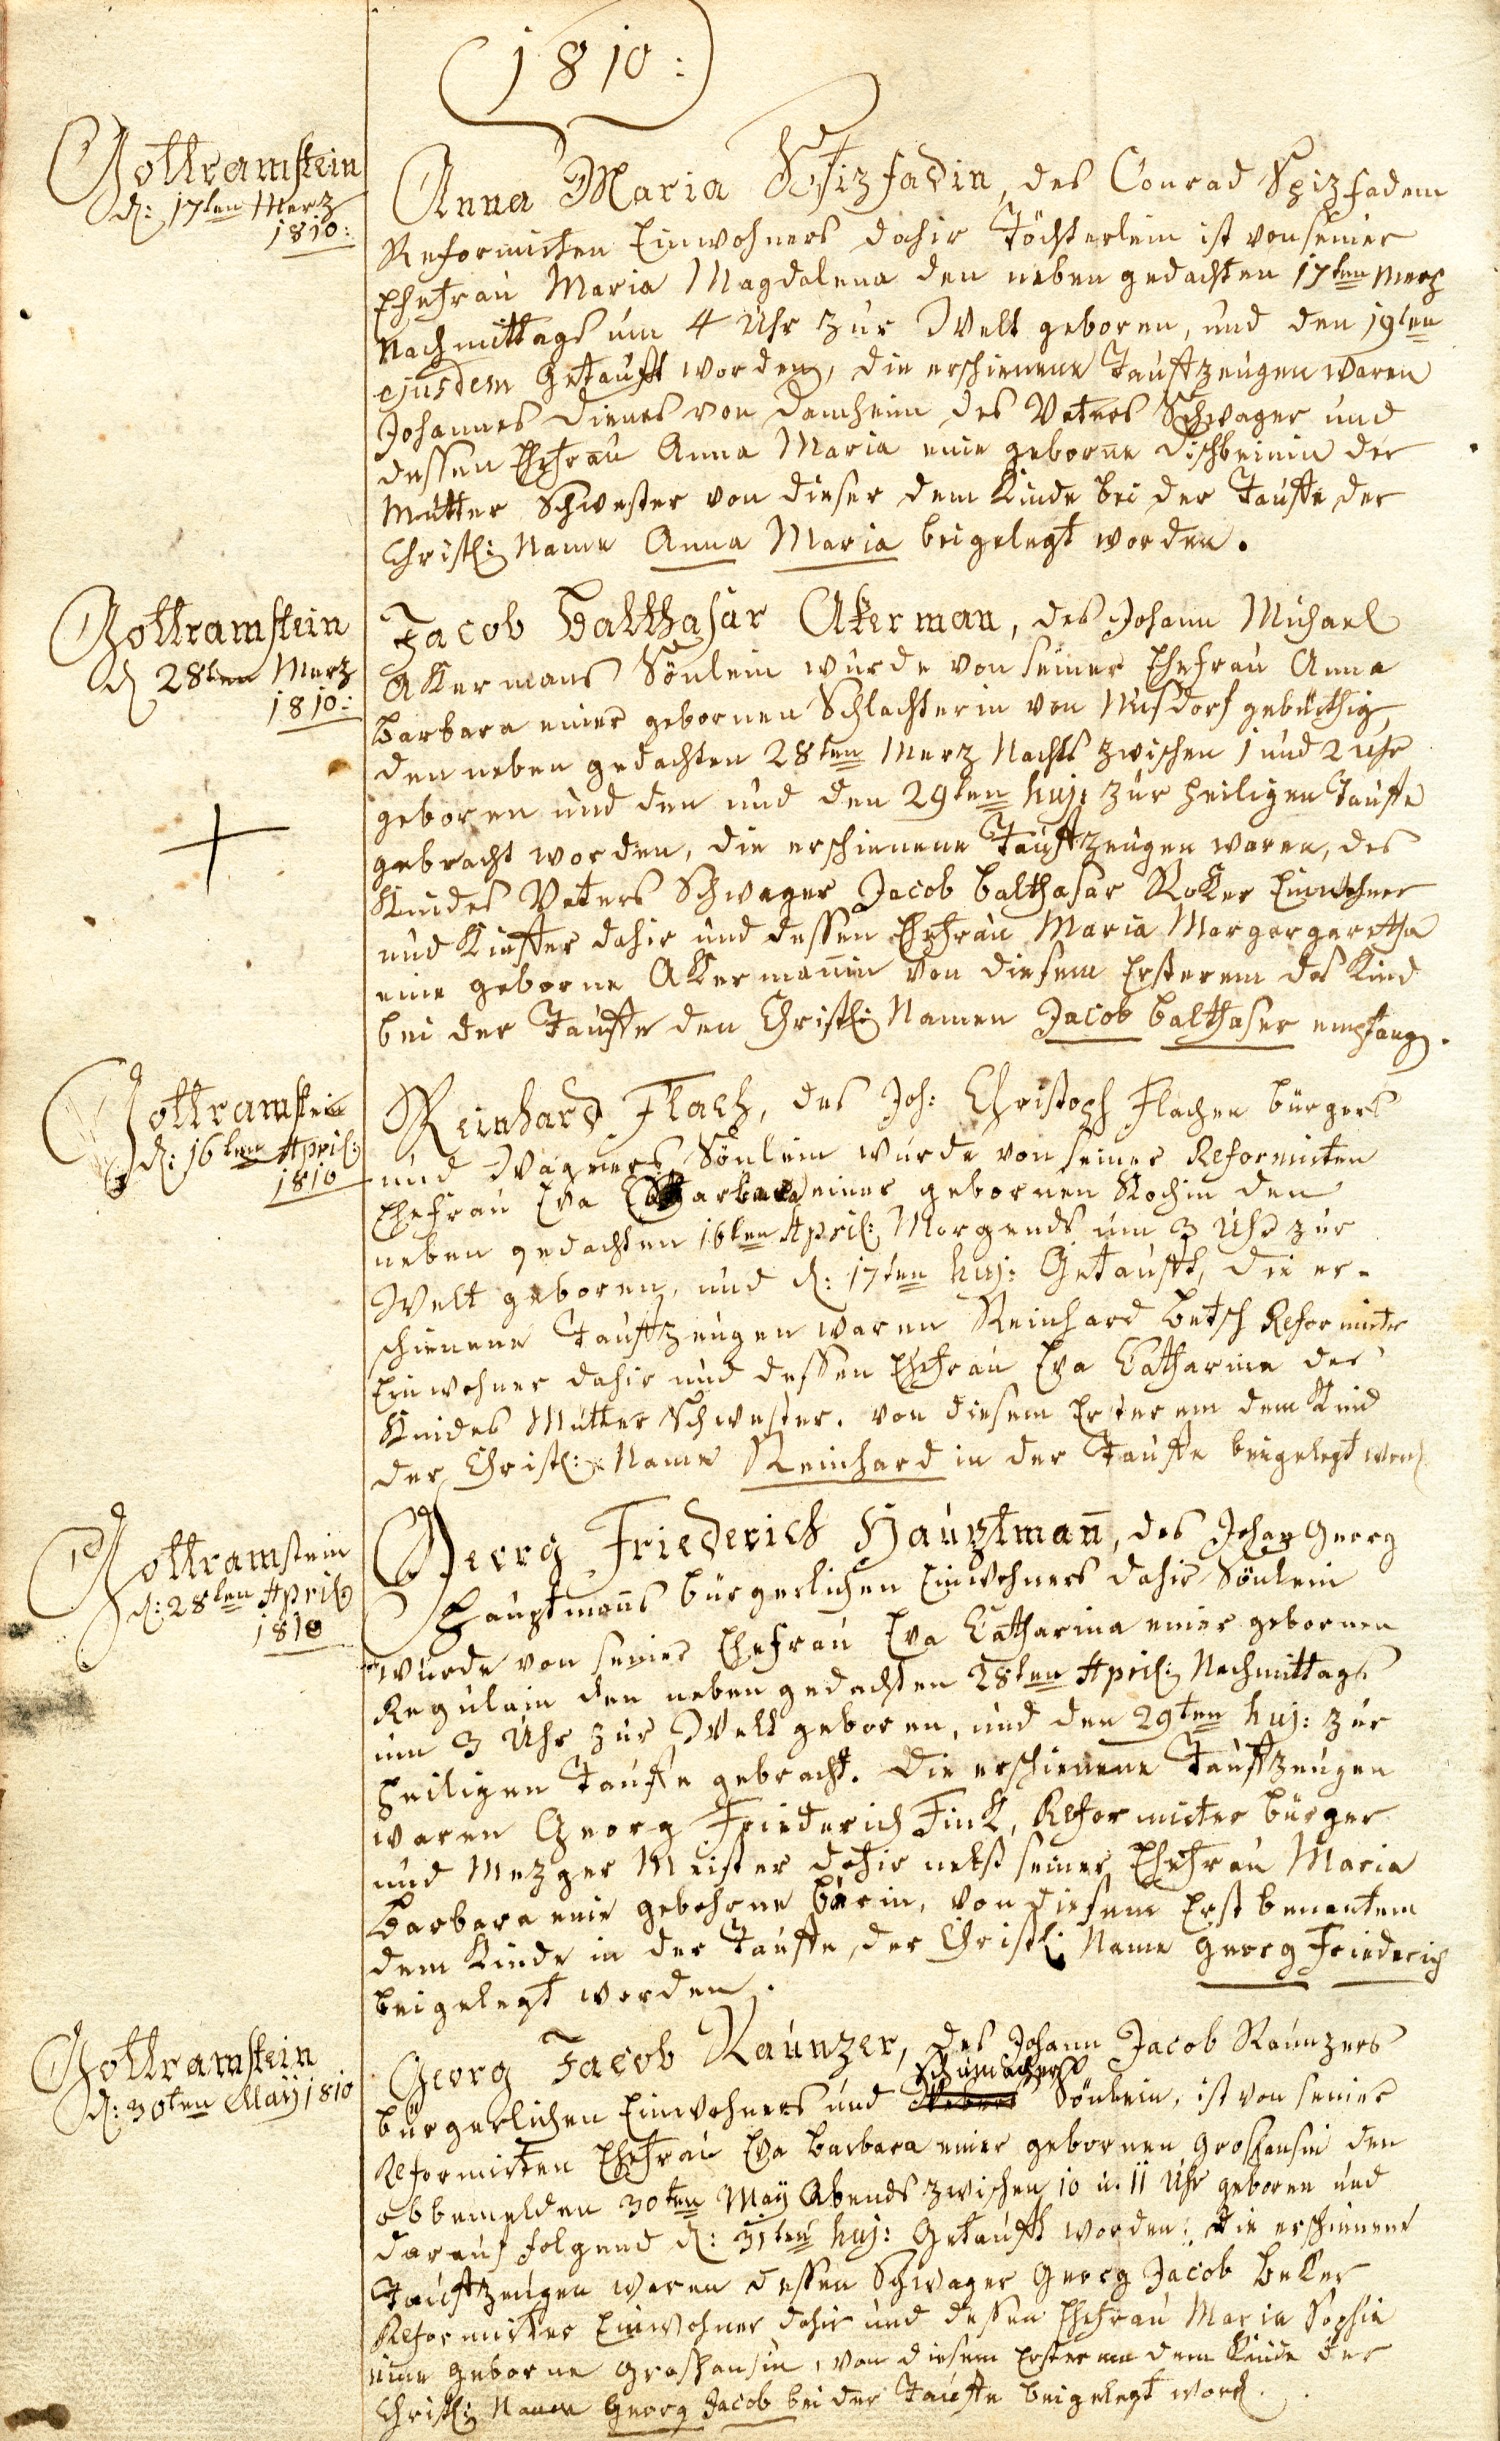 1810:
Gottramstein
d: 17ten Merz
1810:
Anna Maria Spizfadin, des Conrad Spizfadem
Reformirten Einwohners dahir Töchterlein ist von seiner
Ehefrau Maria Magdalena den neben gedachten 17ten Merz
Nachmittags um 4 Uhr zur Welt geboren, und den 19ten
ejusdem Getaufft worden, die erschienene Tauffzeugen waren
Johannes Dienes von Damheim des Vaters Schwager und
dessen Ehefrau Anna Maria eine geborne Dischbeinin der
Mutter Schwester von dieser dem Kinde bei der Tauffe der
Christl: Name Anna Maria beigelegt worden.
Gottramstein
d 28ten Merz
1810:
Jacob Balthasar Akerman, des Johann Michael
Akermans Sönlein wurde von seiner Ehefrau Anna
Barbara einer gebornen Schlachterin von Nusdorf gebürthig,
den neben gedachten 28ten Merz Nachts zwischen 1 und 2 Uhr
geboren und den und den 29ten huj: zur heiligen Tauffe
gebracht worden, die erschienene Tauffzeugen waren, des
Kindes Vaters Schwager Jacob Balthasar Roker Einwohner
und Kieffer dahir und dessen Ehefrau Maria Margargaretha
eine geborne Akermanin von diesem Ersterem das Kind
bei der Tauffe den Christl: Namen Jacob Balthaser empfang.
Gottramstein
d: 16ten April:
1810
Reinhard Flach, des Joh: Christoph Flachen bürgers
und Wagners Sönlein wurde von seiner Reformirten
Ehefrau Eva Barbara einer gebornen Kochin den
neben gedachten 16ten April: Morgends um 3 Uhr zur
Welt geboren, und d: 17ten huj: Getaufft, die er-
schienene Tauffzeugen waren Reinhard Betsch Reformirter
Einwohner dahir und dessen Ehefrau Eva Catharina der
Kindes Mutter Schwester. von diesem Ersterem dem Kind
der Christl: Name Reinhard in der Tauffe beigelegt word
Gottramstein
d: 28ten April
1810
Georg Friederich Hauptman, des Johan Georg
Hauptmans bürgerlichen Einwohners dahir Sönlein
wurde von seiner Ehefrau Eva Catharina einer gebornen
Regulain den neben gedachten 28ten April: Nachmittags
um 3 Uhr zur Welt geboren, und den 29ten huj: zur
heiligen Tauffe gebracht. die erschienene Tauffzeugen
waren Georg Friederich Fink, Reformirter bürger
und Mezger Meister dahir nebst seiner Ehefrau Maria
Barbara eine gebohrne Bärin, von diesem Erst benantem
dem Kinde in der Tauffe der Christl: Name Georg Friederich
beigelegt worden.
Gottramstein
d: 30ten Maÿ 1810
Georg Jacob Raunzer, des Johann Jacob Raunzers
Schumachers
bürgerlichen Einwohners und Sönlein, ist von seiner
Reformirten Ehefrau Eva Barbara einer gebornen Groshansin den
obbemelden 30ten Maÿ Abends zwischen 10 u. 11 Uhr geboren und
darauf folgend d: 31ten huj: Getaufft worden: die erschienene
Tauffzeugen waren dessen Schwager Georg Jacob Beker
Reformirter Einwohner dahir und dessen Ehefrau Maria Sophia
eine geborne Groshansin, von diesem Ersterem dem Kinde der
Christl: Name Georg Jacob bei der Tauffe beigelegt word.